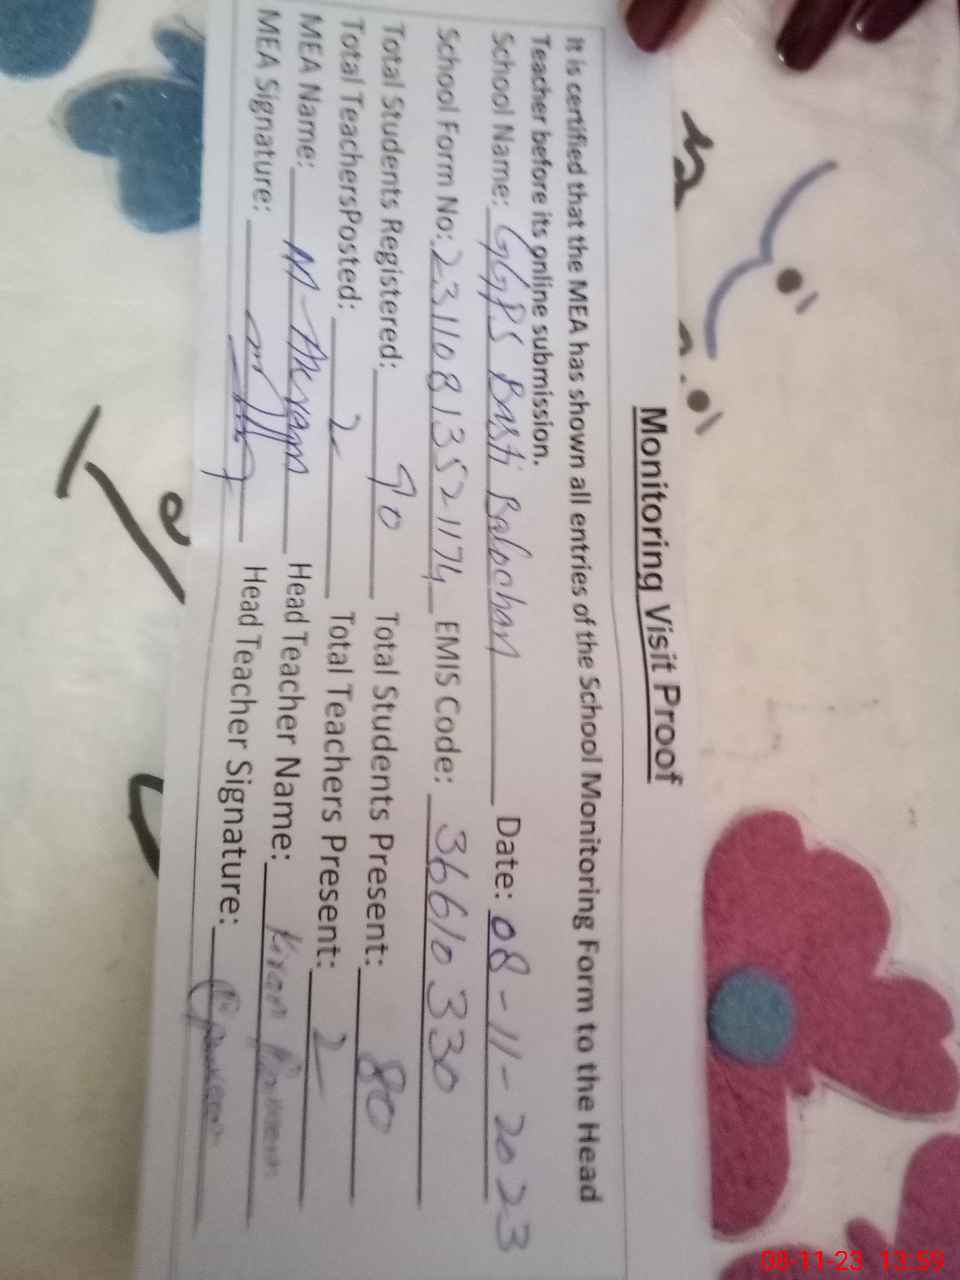 Monitoring Visit Proof
It is certified that the MEA has shown all entries of the School Monitoring Form to the Head
Teacher before its online submission.
School Name: GGPS Basti Balochan Date: 08-11-2023
School Form No: 23110813521174 EMIS Code: 36610330
Total Students Registered: 90 Total Students Present: 80
Total TeachersPosted: 2 Total Teachers Present: 2
MEA Name: M-Akram Head Teacher Name: Kiran
MEA Signature: Head Teacher Signature:
08-11-23 13:59